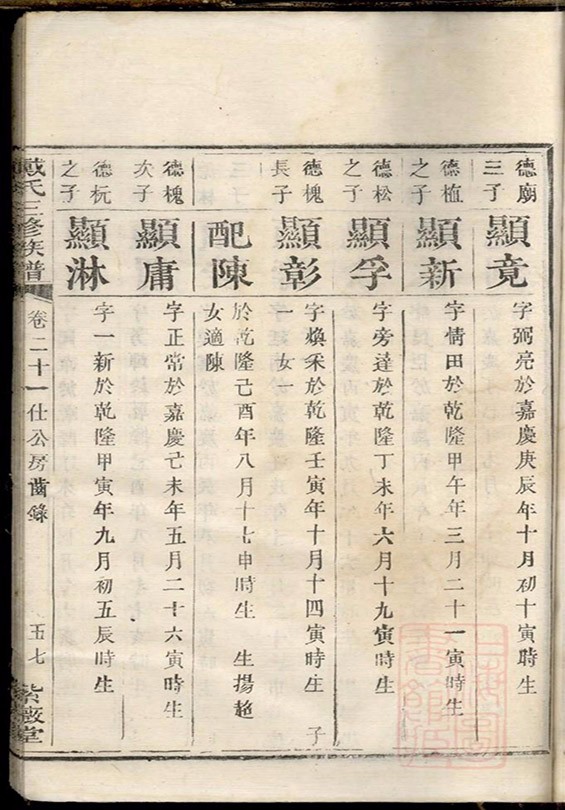 德廟
三子
顯竟
字弼亮於嘉慶庚辰年十月初十寅時生
德植
之子
顯新
字情田於乾隆甲午年三月二十一寅時生
德松
之子
顯孚
字旁達於乾隆丁未年六月十九寅時生
德槐
長子
顯彰
字煥采於乾隆壬寅年十月十四寅時生 子
一女一
配陳
於乾隆己酉年八月十七申時生 生揚超
女適陳
德槐
次子
顯庸
字正常於嘉慶己未年五月二十六寅時生
德杬
之子
顯淋
字一新於乾隆甲寅年九月初五辰時生
戴氏三修族譜 卷二十一仕公房齒錄 五七 紫薇堂